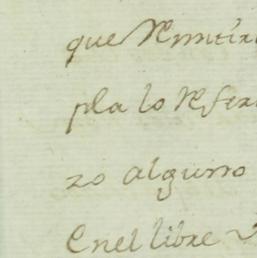 que Remitir
pla lo Refer
zo alguno
Enel libre